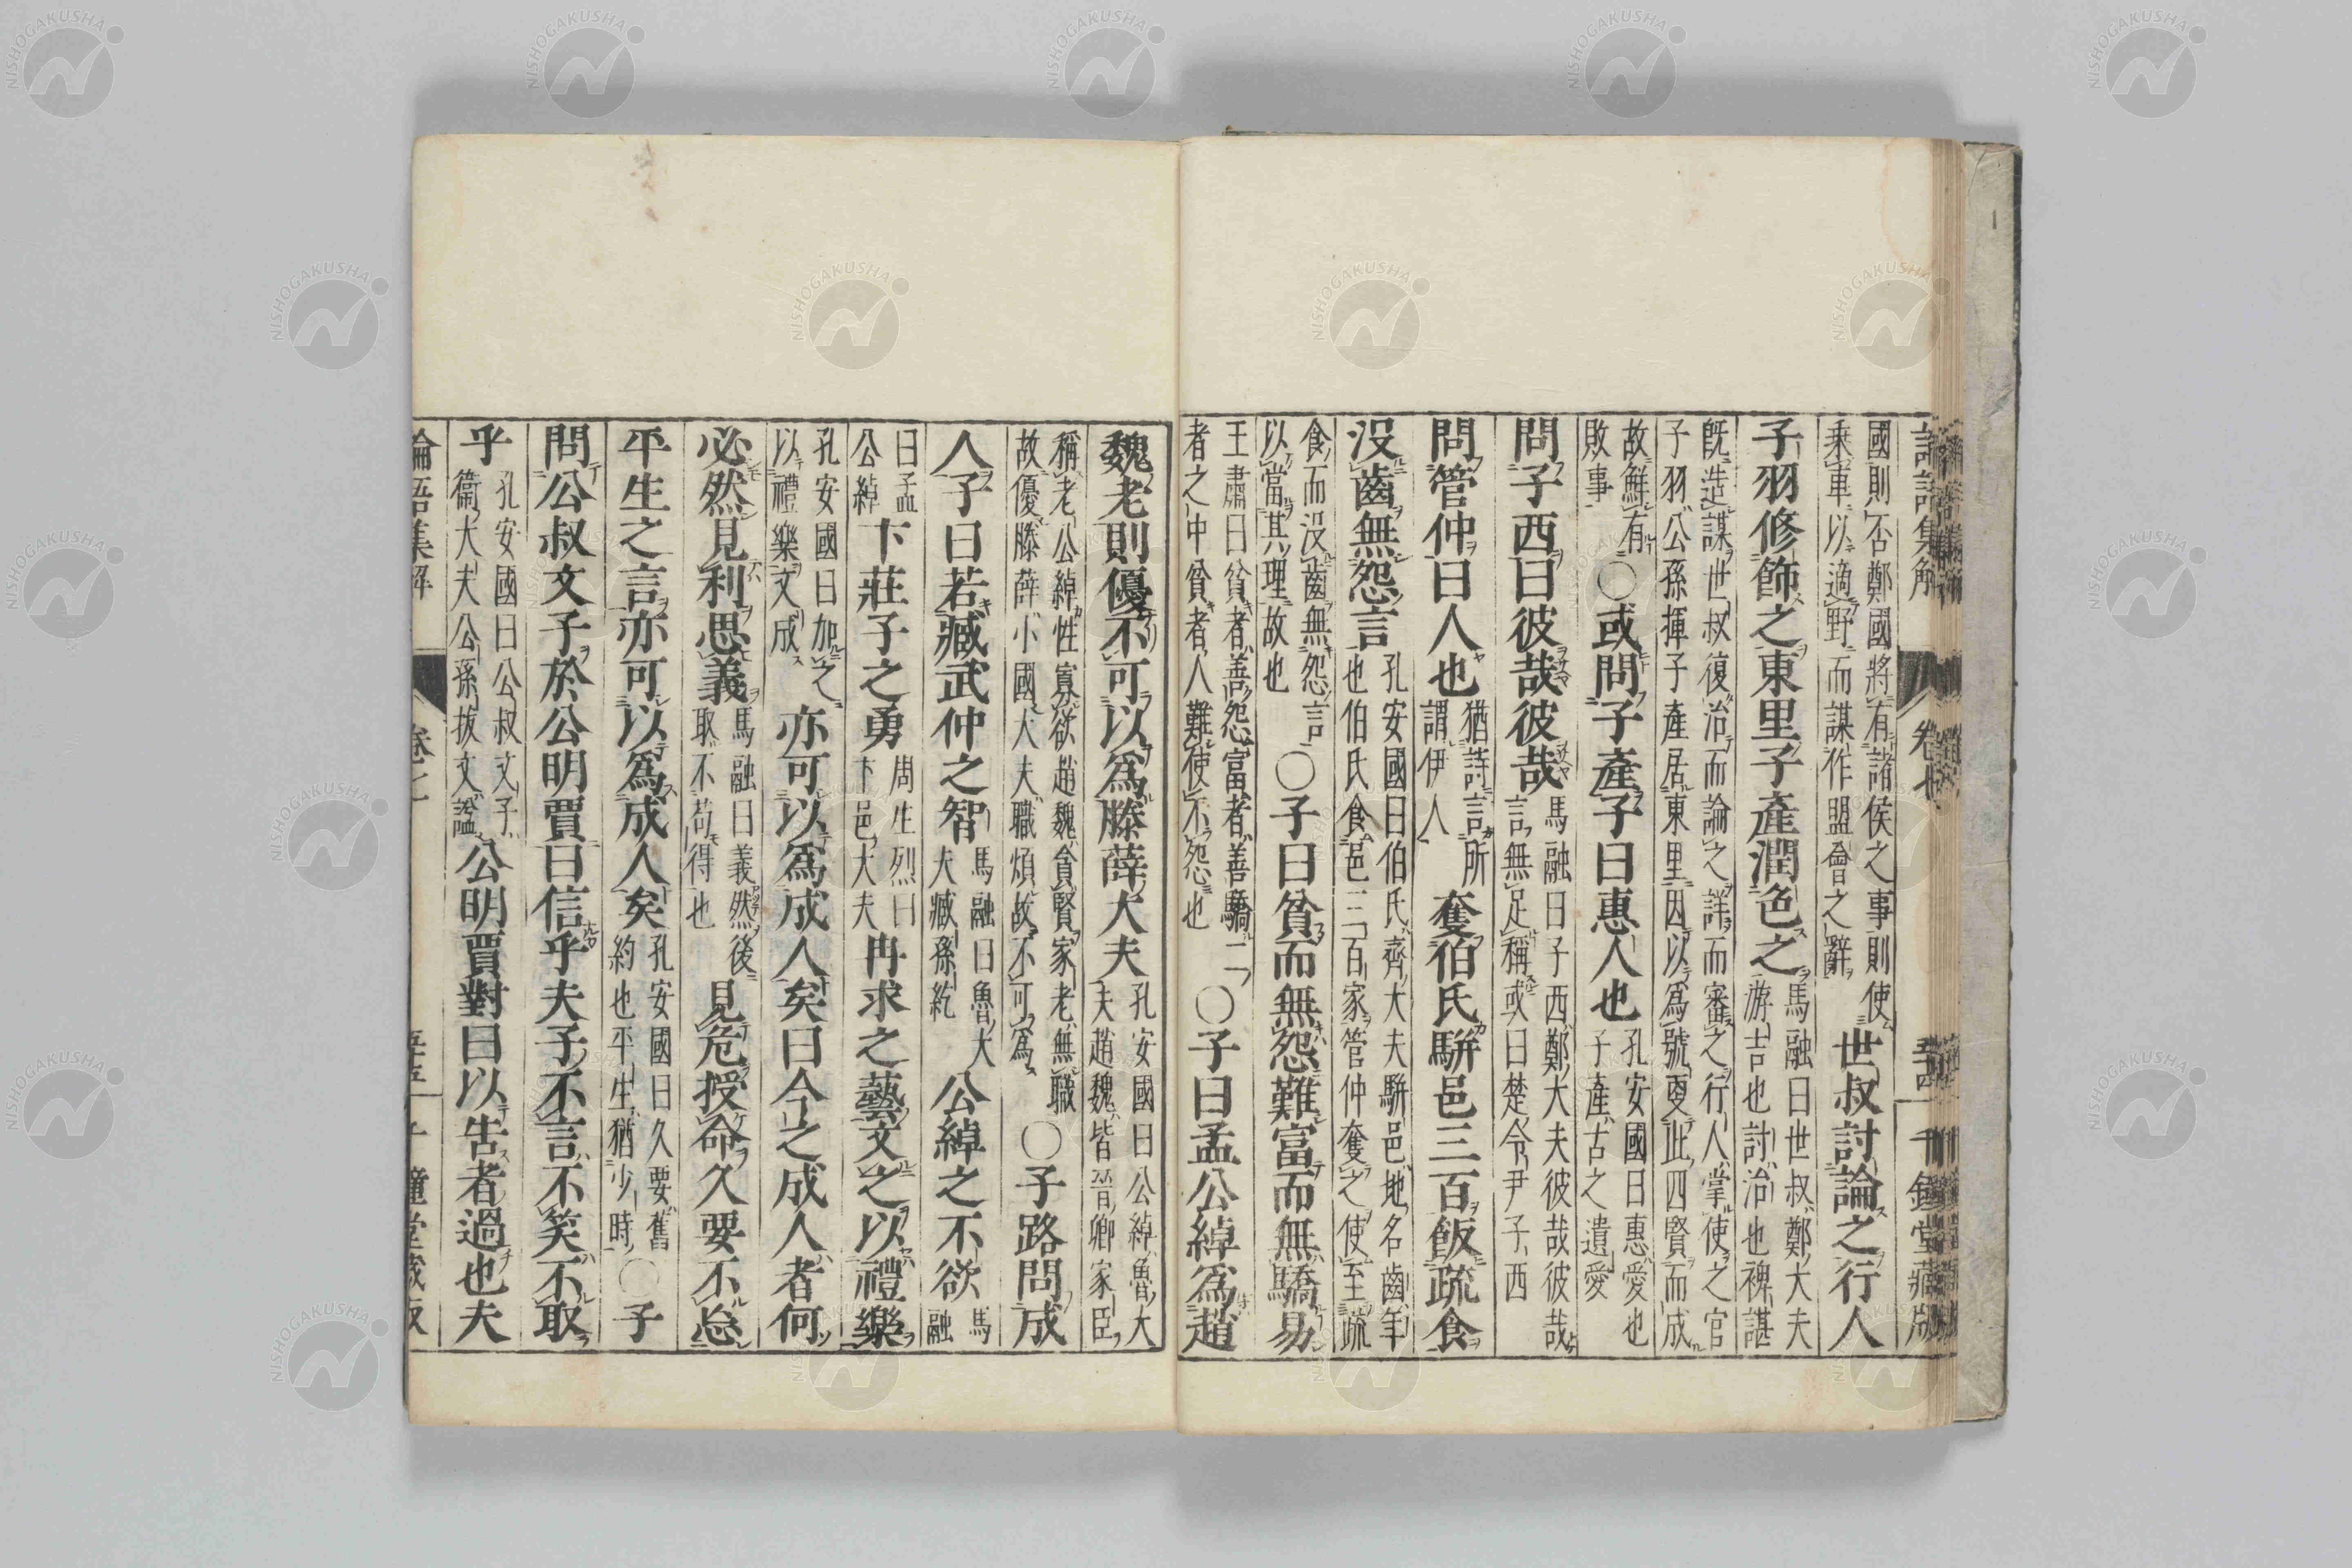 論語集解 卷七 五十四 千鍾堂藏版
國則否鄭國將有諸侯之事則使乘車以適野而謀作盟會之辭世叔討論之行人
子羽修飾之東里子產潤色之馬融曰世叔鄭大夫游吉也討治也裨諶
既造謀世叔復治而論之詳而審之行人掌使之官子羽公孫揮子產居東里因以爲號更此四賢而成
故鮮有敗事〇或問子產子曰惠人也孔安國曰惠愛也子產古之遺愛
問子西曰彼哉彼哉馬融曰子西鄭大夫彼哉彼哉言無足稱或曰楚令尹子西
問管仲曰人也猶詩言所謂伊人奪伯氏駢邑三百飯疏食
没齒無怨言孔安國曰伯氏齊大夫駢邑地名齒年也伯氏食邑三百家管仲奪之使至疏
食而没齒無怨言以當其理故也〇子曰貧而無怨難富而無驕易
王肅曰貧者善怨富者善驕二者之中貧者人難使不怨也〇子曰孟公綽爲趙
魏老則優不可以爲滕薛大夫孔安國曰公綽魯大夫趙魏皆晉卿家臣
稱老公綽性寡欲趙魏貪賢家老無職故優滕薛小國大夫職煩故不可爲〇子路問成
人子曰若臧武仲之智馬融曰魯大夫臧孫紇公綽之不欲馬融
曰孟公綽卞莊子之勇周生烈曰卞邑大夫冉求之藝文之以禮樂
孔安國曰加之以禮樂文成亦可以爲成人矣曰今之成人者何
必然見利思義馬融曰義然後取不苟得也見危授命久要不忘
平生之言亦可以爲成人矣孔安國曰久要舊約也平生猶少時〇子
問公叔文子於公明賈曰信乎夫子不言不笑不取
乎孔安國曰公叔文子衞大夫公孫拔文謚公明賈對曰以告者過也夫
論語集解 卷七 五十五 千鐘堂藏版